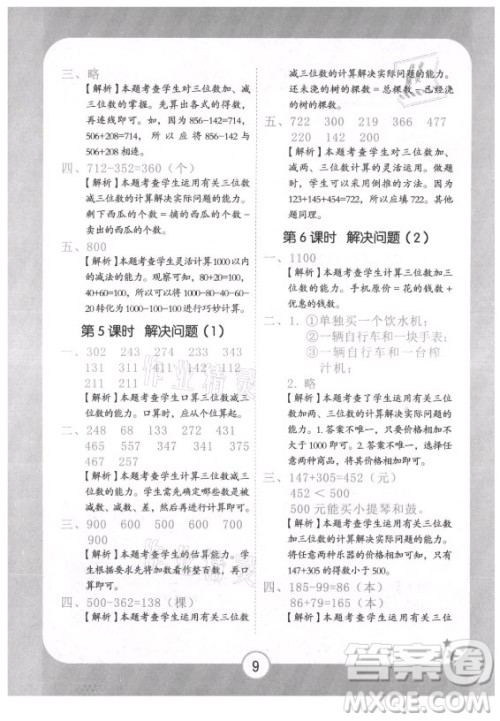 三、略
【解析】本题考查学生对三位数加、减
三位数的掌握。先算出各式的得数，
再连线即可。如 856-142=714，
506+208=714，所以应将 856-142 与
506+208 相连。
四、712-352=360（个）
【解析】本题考查学生运用有关三位数
减三位数的计算解决实际问题的能力。
剩下西瓜的个数 = 摘的西瓜的个数 -
卖了的西瓜的个数。
五、800
【解析】本题考查学生灵活计算 1000 以内
的减法的能力。观察可知，80+20=100，
60+40=100，所以可将 1000-80-60-40-
20 转化为 1000-100-100 进行巧妙计算。
第 5 课时 解决问题（1）
一、302 243 274 233 243
131 311 411 142 112
211 211
【解析】本题考查学生口算三位数减三位
数的能力。口算时，应从高位减起。
二、268 429 283 68 131
465 557 347 341 375
467 257
【解析】本题考查学生计算三位数减三
位数的能力。学生应明确表中每栏是被
减数、减数、差，机动灵活计算。
三、900 600 500 700 900
900
【解析】本题考查学生的估算能力。学
生应先将加数看作整百数，再口算即可。
四、500-362=138（棵）
【解析】本题考查学生运用有关三位数
减三位数的计算解决实际问题的能力。
还未浇的树的棵数 = 总棵数 - 已浇
树的棵数。
五、722 300 219 366 477
220 142 200
【解析】本题考查学生对三位数加、
减两、三位数的计算的灵活运用。做
题时，学生可以采用倒推的方法。因
123+145+454=722，所以应填 722。其
他题同理。
第 6 课时 解决问题（2）
一、1100
【解析】本题考查学生运用有关三位数
加三位数的计算解决实际问题的能
力。手机原价 = 花的钱数 + 优惠的钱数。
二、1. ①单独买一个饮水机；
②一辆自行车和一块手表；
③一辆自行车和一台榨
汁机；
2. 略
【解析】本题考查学生运用有关三位数加
两、三位数的计算解决实际问题的能
力。1. 答案不唯一，只要价格相加不大于
1000 即可。2. 答案不唯一，学生可任意
选择两样商品，将其价格相加即可。
三、147+305=452（元）
452 < 500
500 元能买小提琴和鼓。
【解析】本题考查学生运用有关三位数
加三位数的计算解决实际问题的能力。
147+305 的得数小于 500。
四、185-99=86（本）
86+79=165（本）
【解析】本题考查学生运用有关三位数
9
答案圈
MXQE.COM